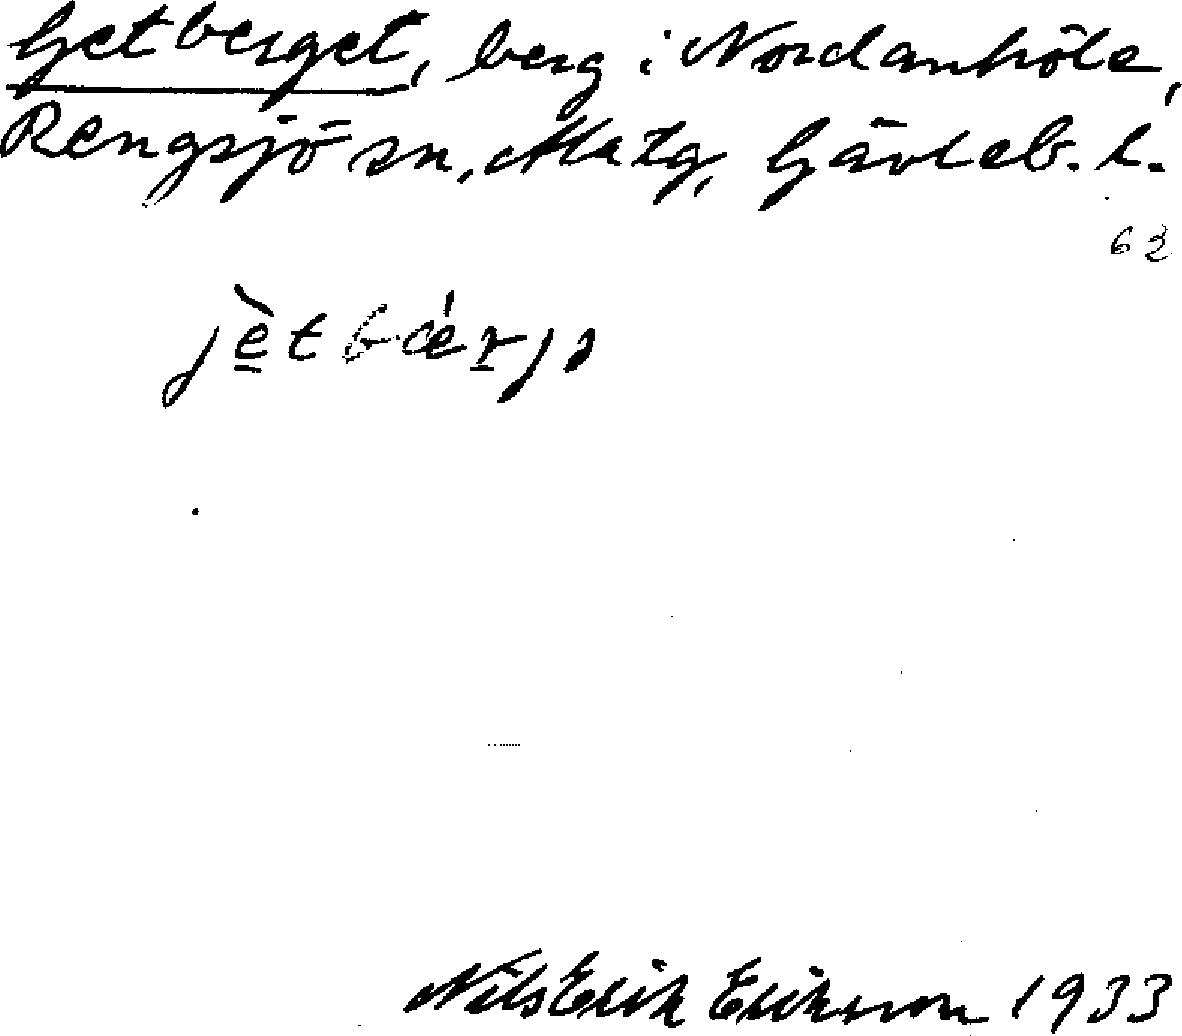 Getberget, berg i Nordanhöle,
Rengsjö sn, Ala tg, Gävleb. l.
63
jètbǽrjə
Nils Erik Eriksson 1933